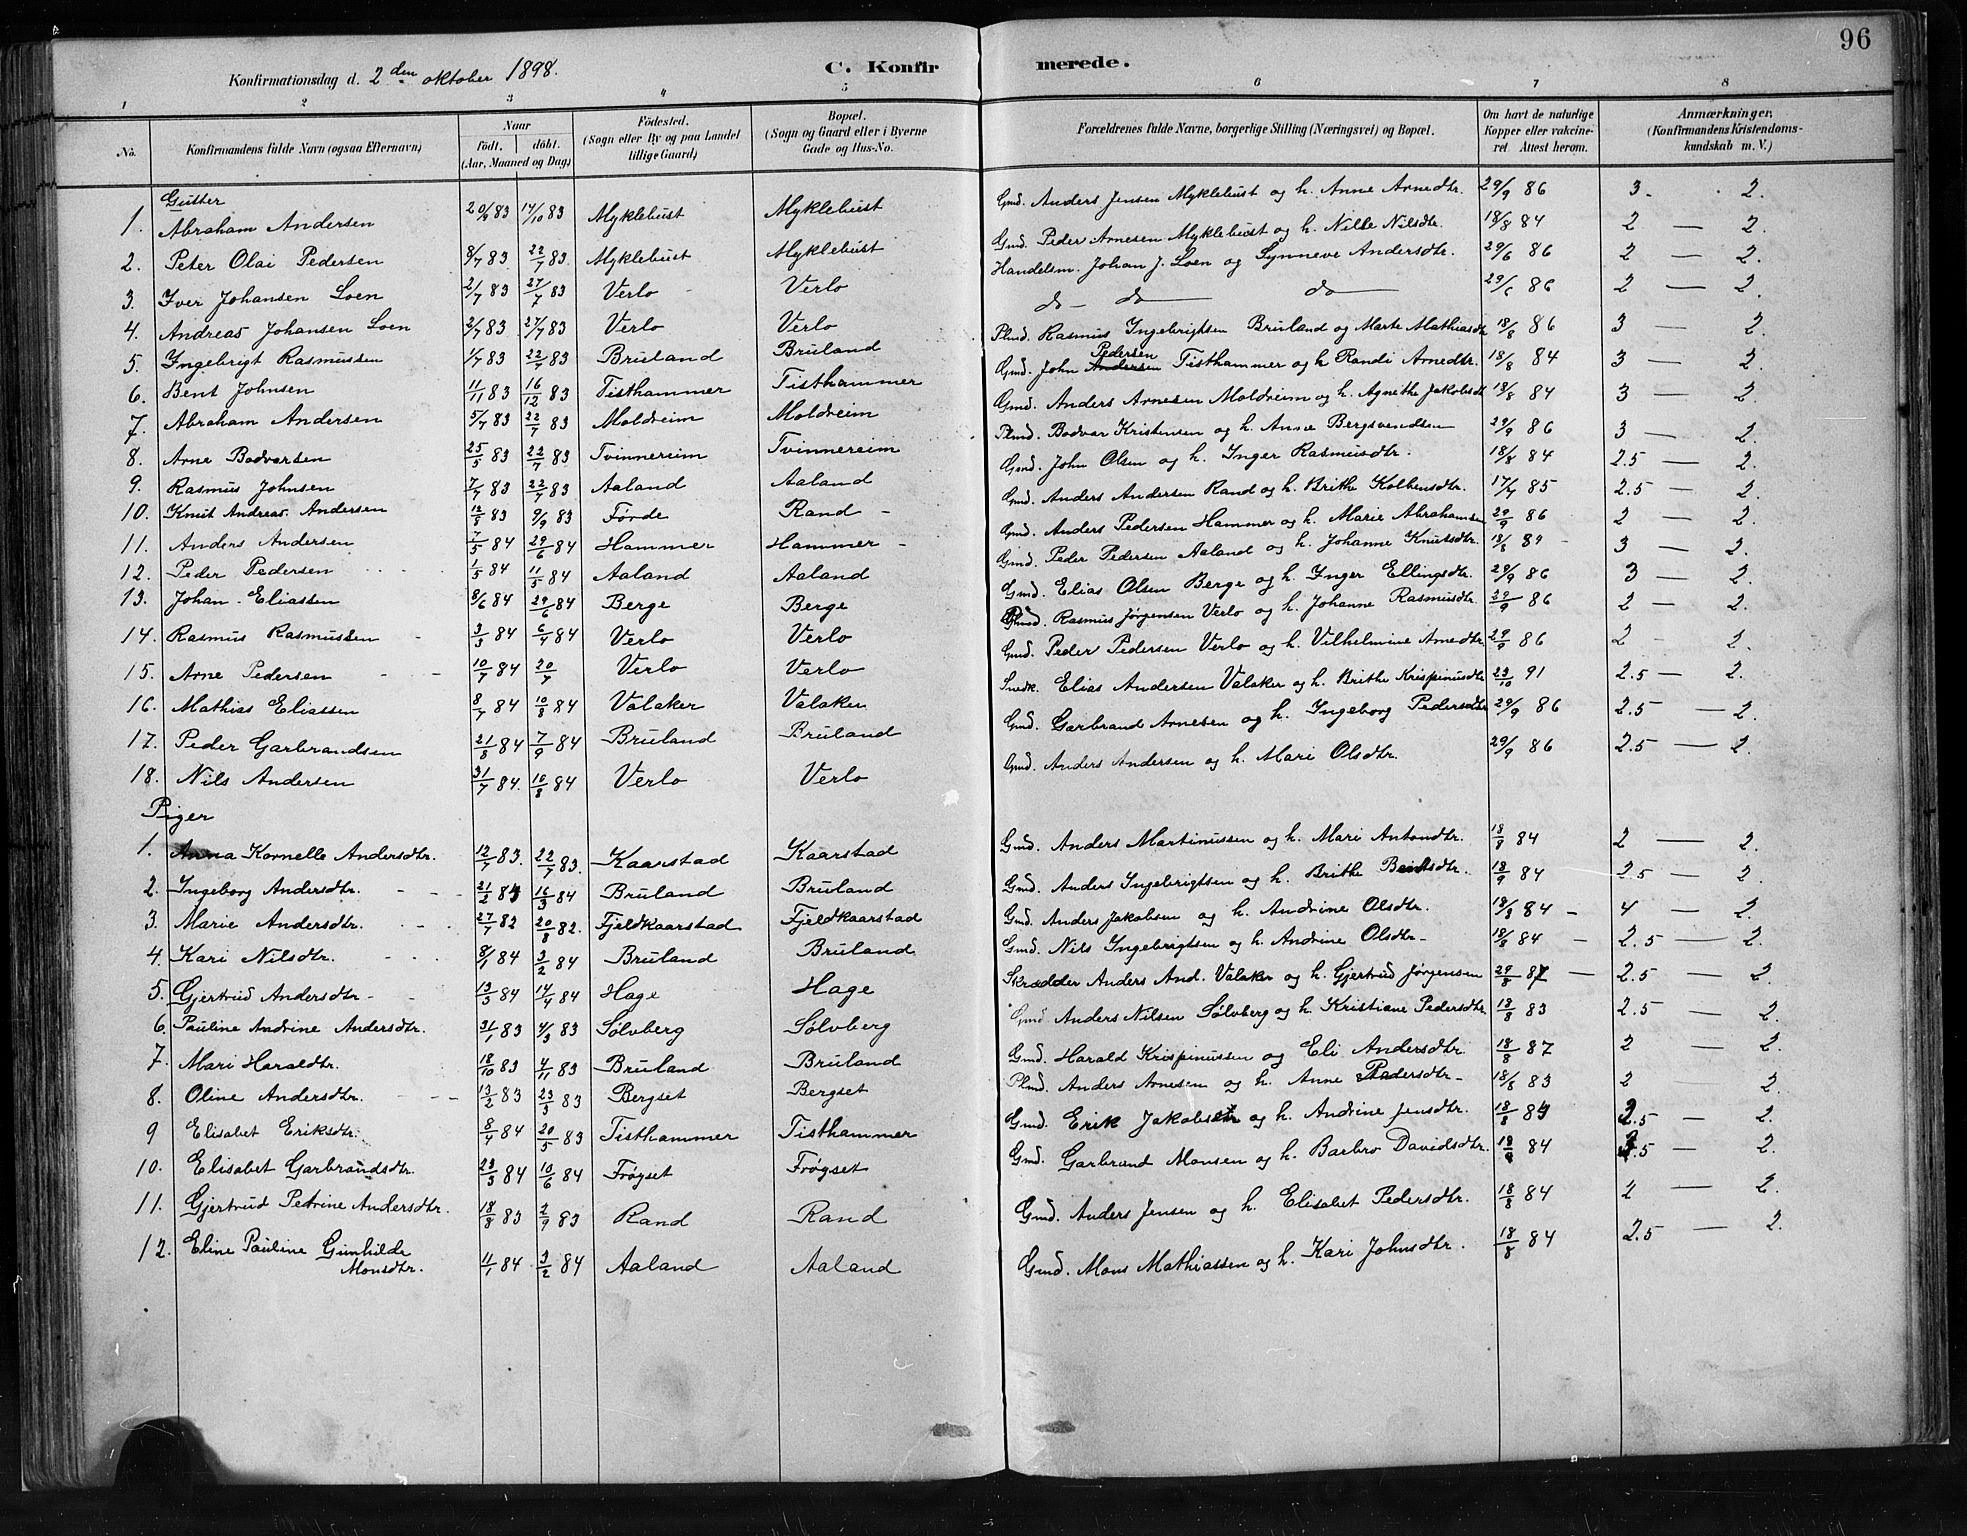 96
Konfirmationsdag d. 2den oktober 1898.
C. Konfirmerede.
1 2 3 4 5 6 7 8
No. Konfirmandens fulde Navn (ogsaa Efternavn) Naar født. døbt. (Aar, Maaned og Dag) Fødested. (Sogn eller By og paa Landet tillige Gaard) Bopæl. (Sogn og Gaard eller i Byerne Gade og Hus-No. Forældrenes fulde Navne, borgerlige Stilling (Næringsvei) og Bopæl. Om havt de naturlige Kopper eller vakcineret. Attest herom. Anmærkninger. (Konfirmandens Kristendomskundskab m. V.)
Gutter
1. Abraham Andersen 20/9 83 14/10 83 Myklebust Myklebust Gmd. Anders Jensen Myklebust og h. Anne Arnedtr. 29/9 86 3. 2.
2. Peter Olai Pedersen 8/7 83 22/7 83 Myklebust Myklebust Gmd. Peder Arnesen Myklebust og h. Nille Nilsdtr. 18/8 84 2 — 2.
3. Iver Johansen Loen 2/7 83 27/7 83 Verlo Verlo Handelsm. Johan J. Loen og Synneve Andersdtr. 29/6 86 2 — 2.
4. Andreas Johansen Loen 2/7 83 27/7 83 Verlo Verlo do — do — do — 29/6 86 2 — 2.
5. Ingebrigt Rasmussen 1/7 83 22/7 83 Bruland Bruland Plmd. Rasmus Ingebrigtsen Bruland og Marte Mathiasdtr 18/8 86 3 — 2.
6. Bent Johnsen 11/11 83 16/12 83 Tisthammer Tisthammer Gmd. John Andersen Pedersen Tisthammer og h. Randi Arnedtr. 18/8 84 3 — 2.
7. Abraham Andersen 5/7 83 22/7 83 Moldreim Moldreim Gmd. Anders Arnesen Moldreim og h. Agnethe Jakobsdt 18/8 84 3 — 2.
8. Arne Bodvarsen 25/5 83 22/7 83 Tvinnereim Tvinnereim Plmd. Bodvar Kristensen og h. Anne Bergsvendsen 29/9 86 3 — 2.
9. Rasmus Johnsen 7/7 83 22/7 83 Aaland Aaland Gmd. John Olsen og h. Inger Rasmusdtr. 18/8 84 2.5 — 2.
10. Knut Andreas Andersen 12/8 83 9/9 83 Førde Rand - Gmd. Anders Andersen Rand og h. Brithe Kolbensdtr. 17/7 85 2.5 — 2.
11. Anders Andersen 7/5 84 29/6 84 Hammer Hammer - Gmd. Anders Pedersen Hammer og h. Marie Abrahamsen 29/9 86 2 — 2.
12. Peder Pedersen 1/5 84 11/5 84 Aaland Aaland Gmd. Peder Pedersen Aaland og h. Johanne Knutsdtr. 18/8 89 3 — 2.
13. Johan Eliassen 8/6 84 29/6 84 Berge Berge Gmd. Elias Olsen Berge og h. Inger Ellingsdtr. 29/9 86 3 — 2.
14. Rasmus Rasmussen 3/3 84 6/4 84 Verlo Verlo Plmd. Rasmus Jørgensen Verlo og h. Johanne Rasmusdtr. 29/9 86 2 — 2.
15. Arne Pedersen 10/7 84 20/7 Verlo Verlo Gmd. Peder Pedersen Verlo og h. Vilhelmine Arnedtr 29/9 86 2 - 2.
16. Mathias Eliassen 8/7 84 10/8 84 Valaker Valaker Snedk. Elias Andersen Valaker og h. Brithe Krispinusdtr 23/10 91 2.5 — 2.
17. Peder Garbrandsen 21/8 84 7/9 84 Bruland Bruland Gmd. Garbrand Arnesen og h. Ingeborg Pedersdtr 29/9 86 2.5 — 2.
18. Nils Andersen 31/7 84. 10/8 84 Verlo Verlo Gmd. Anders Andersen og h. Mari Olsdtr. 29/9 86 2.5 — 2.
Piger
1. Anna Kornelle Andersdtr. 12/7 83. 22/7 83. Kaarstad Kaarstad Gmd. Anders Martinussen og h. Mari Antondtr. 18/8 84 2 — 2.
2. Ingeborg Andersdtr. 21/2 84 16/3 84 Bruland Bruland Gmd. Anders Ingebrigtsen og h. Brithe Bentsdtr. 18/9 84 2.5 — 2.
3. Marie Andersdtr. 27/7 82 20/8 82. Fjeldkaarstad Fjeldkaarstad Gmd. Anders Jakobsen og h. Andrine Olsdtr. 18/8 84 - 4 — 2.
4. Kari Nilsdtr. 8/1 84 3/2 84 Bruland Bruland Gmd. Nils Ingebrigtsen og h. Andrine Olsdtr- 18/8 84 - 2.5 — 2.
5. Gjertrud Andersdtr- 13/3 84 14/4 84 Hage Hage Skrædder Anders And. Valaker og h. Gjertrud Jørgensen 29/8 87 — 2.5 — 2.
6. Pauline Andrine Andersdtr. 31/1 83 4/3 83 Sølvberg Sølvberg Gmd Anders Nilsen Sølvberg og h. Kristiane Pedersdtr 18/8 83 2.5 — 2.
7. Mari Haraldtr. 18/10 83 4/11 83 Bruland Bruland Gmd. Harald Krispinussen og Eli Andersdtr. 18/8 87 2 — 2.
8. Oline Andersdtr. 13/2 83 23/3 83 Bergset Bergset Plmd. Anders Arnesen og h. Anne Pedersdtr- 18/8 83 2 2.
9 Elisabet Eriksdtr. 8/4 84 20/5 83 Tisthammer Tisthammer Gmd. Erik Jakobsen og h. Andrine Jensdtr. 18/8 84 2.5 — 2.
10. Elisabet Garbrandsdtr. 23/3 84 10/6 84 Frøgset Frøgset Gmd. Garbrand Monsen og h. Barbro Davidsdtr. 18/8 84 .5 — 2.
11. Gjertrud Petrine Andersdtr. 18/8 83 2/9 83 Rand Rand Gmd. Anders Jensen og h. Elisabet Pedersdtr. 18/8 84 2 — 2.
12. Eline Pauline Gunhilde Monsdtr. 11/1 84 3/2 84 Aaland Aaland Gmd. Mons Mathiassen og h. Kari Johnsdtr. 18/8 84 2.5 — 2.